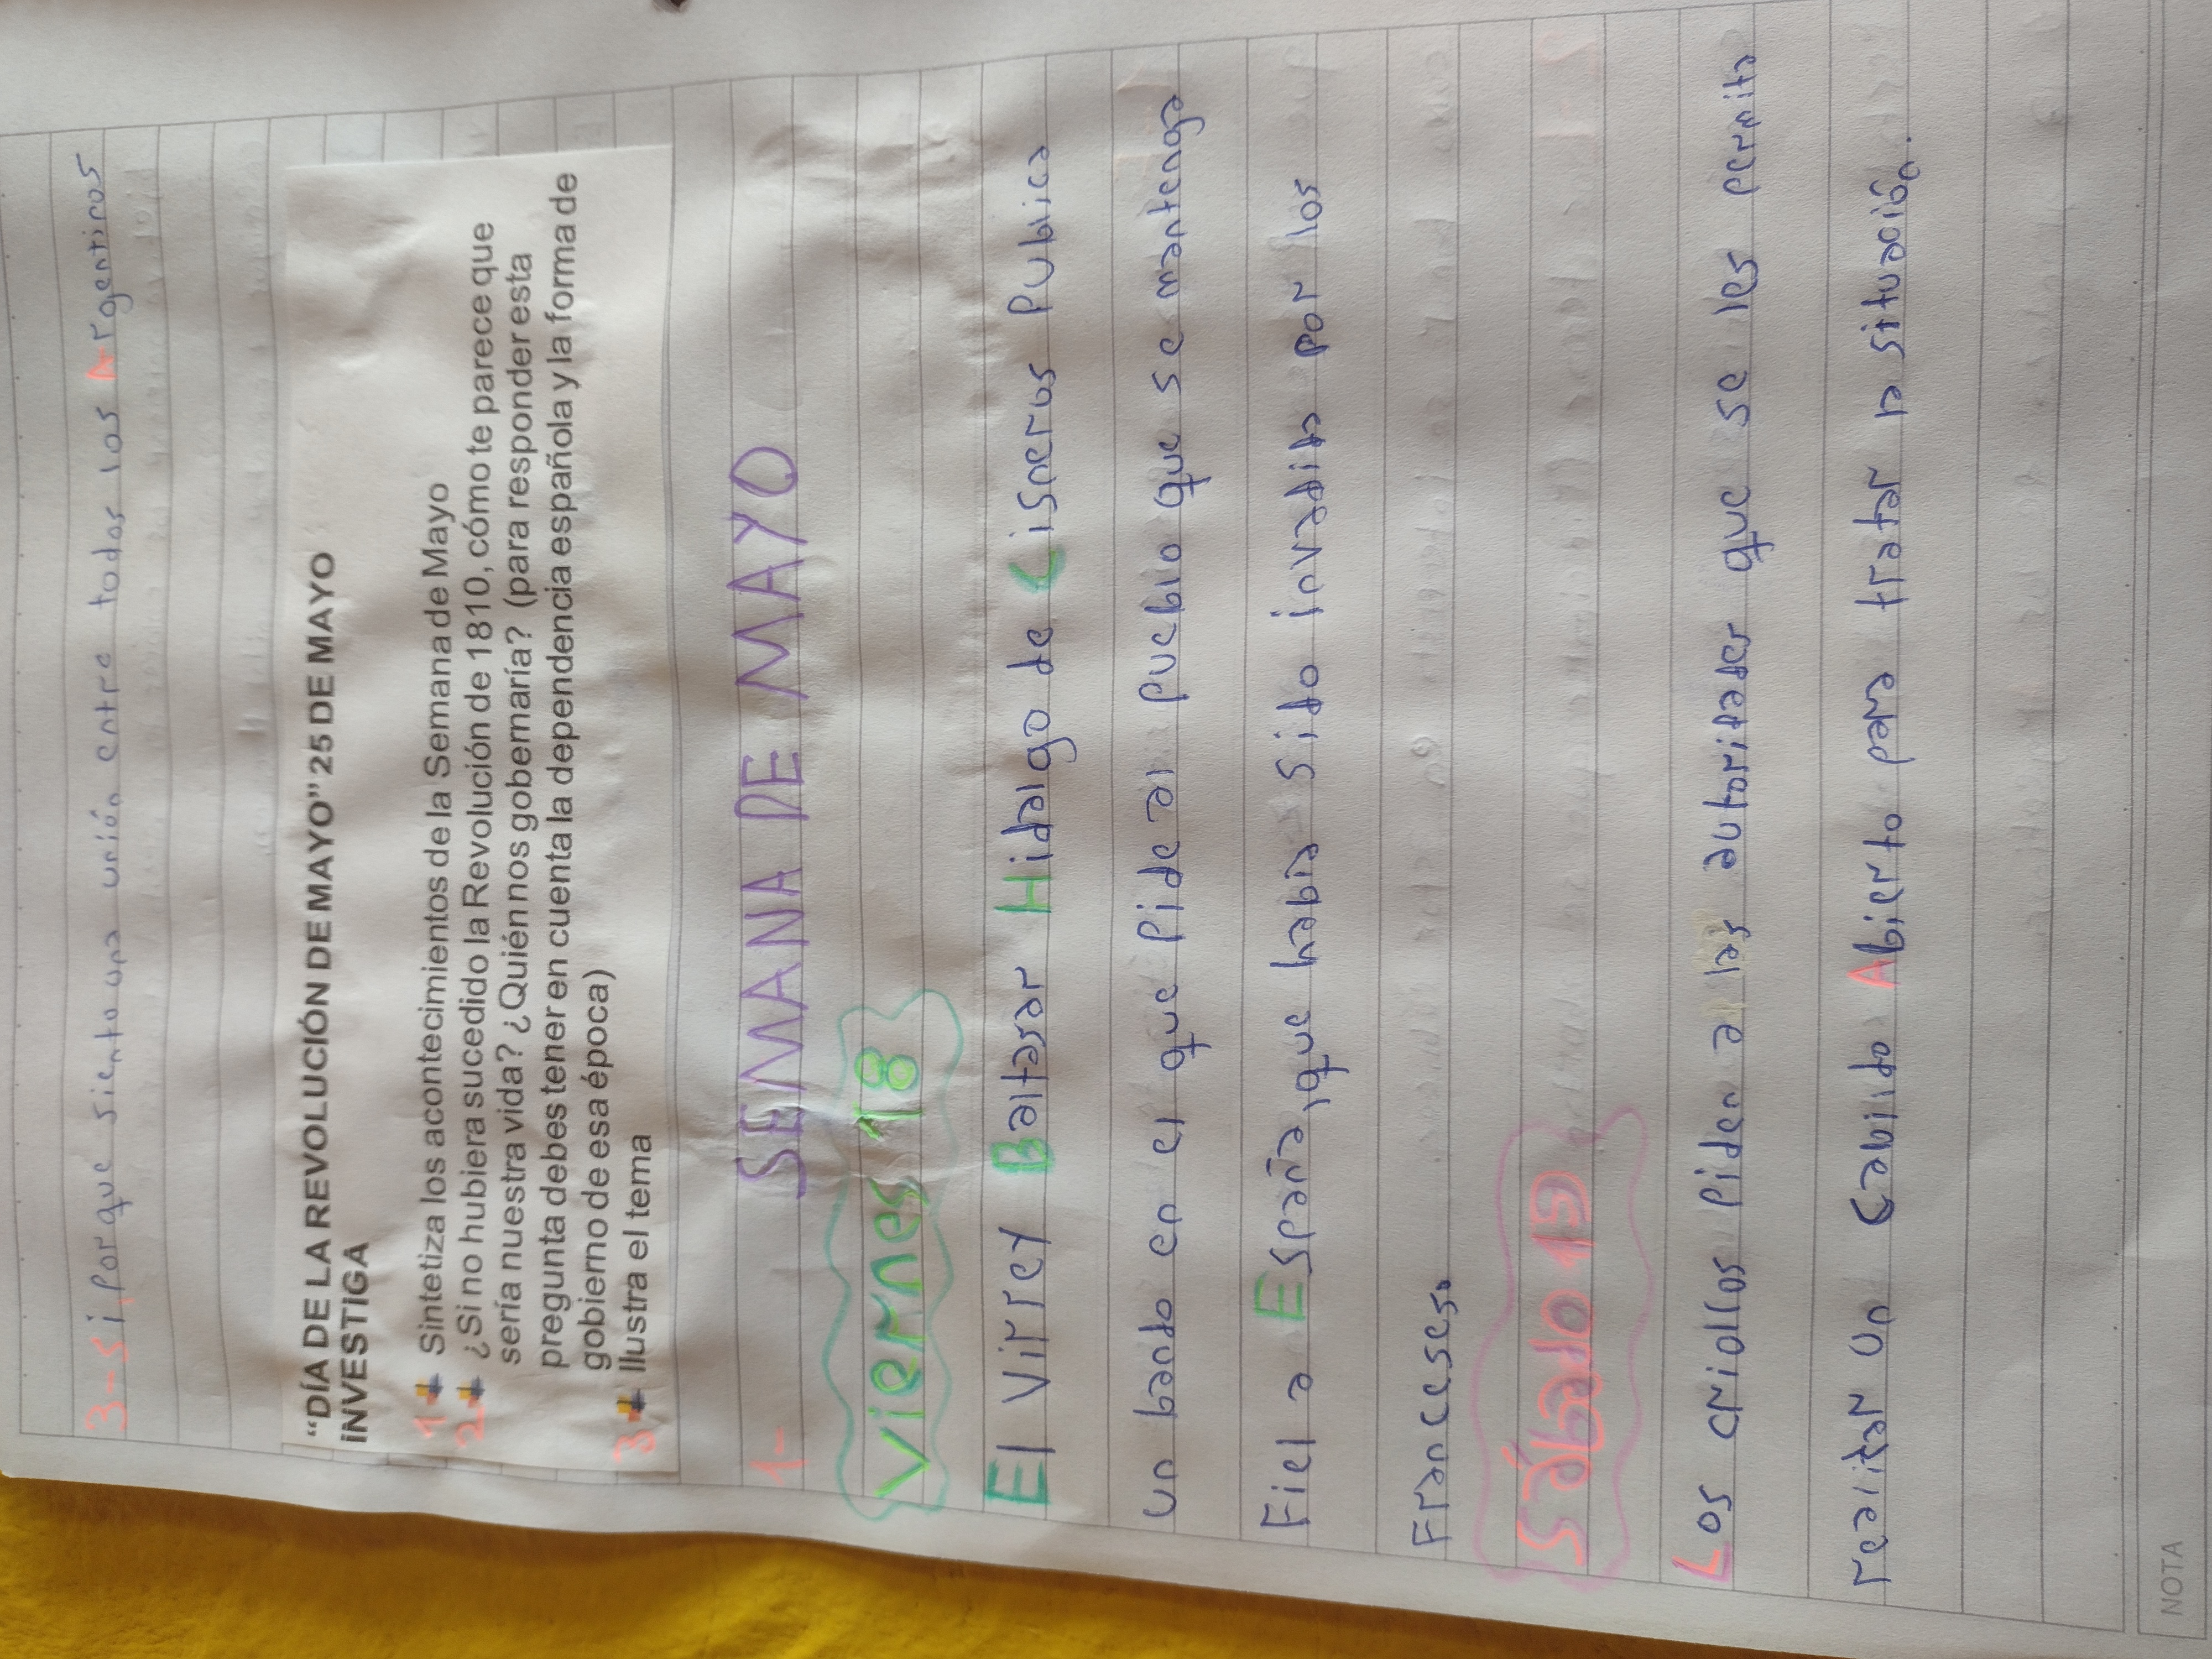 3-Si, porque siento una unión entre todos los Argentinos
“DÍA DE LA REVOLUCIÓN DE MAYO” 25 DE MAYO
iNVESTIGA
1- Sintetiza los acontecimientos de la Semana de Mayo
2- ¿Si no hubiera sucedido la Revolución de 1810, cómo te parece que
sería nuestra vida? ¿Quién nos gobernaría? (para responder esta
pregunta debes tener en cuenta la dependencia española y la forma de
gobierno de esa época)
3- Ilustra el tema
1- SEMANA DE MAYO
Viernes 18
El Virrey Baltasar Hidalgo de Cisneros publica
un bando en el que pide al pueblo que se mantenga
Fiel a España, que habia sido invadida por los
Franceses.
Sábado 19
Los criollos piden a las autoridades que se les permita
realizar un Cabildo Abierto para tratar la situación.
NOTA